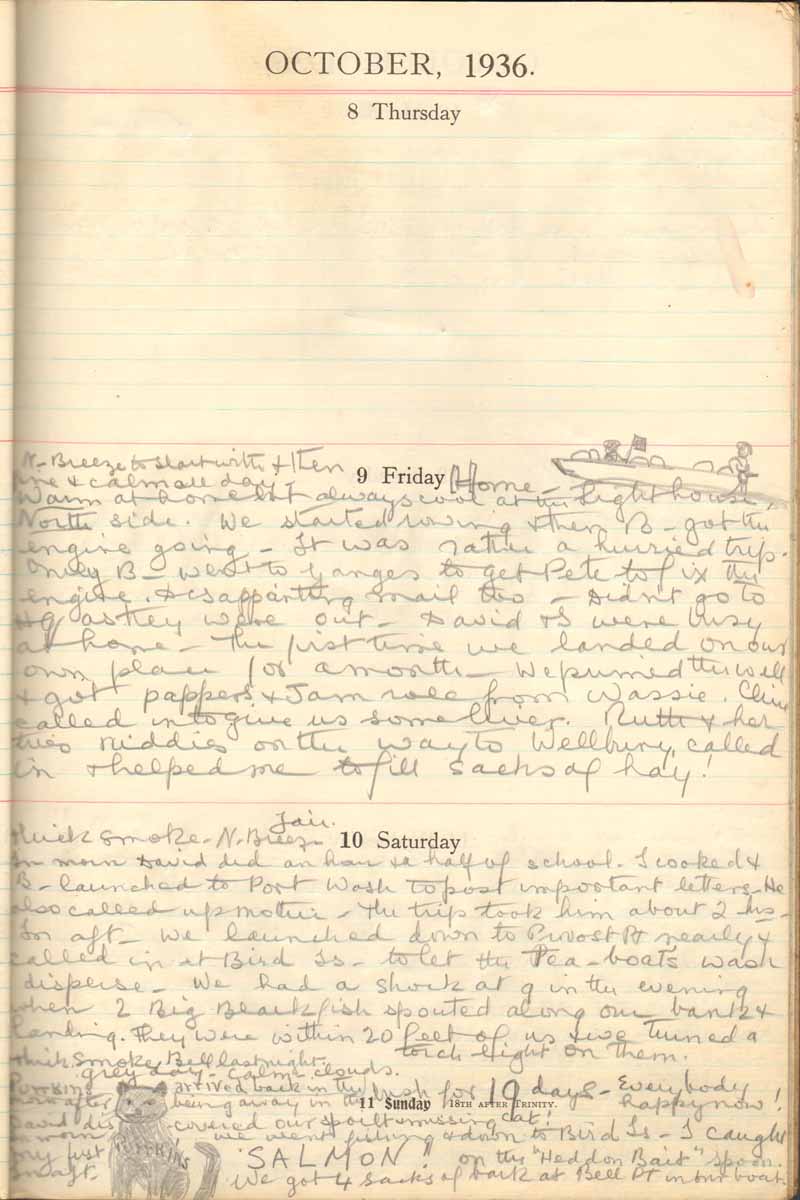 OCTOBER, 1936.
8 Thursday
N- Breeze to start with & then
fine & calm all day. 9 Friday Home -
Warm at home but always cool at the Lighthouse,
North side. We started rowing & then B - got the
engine going - It was rather a hurried trip.
Only B - went to Yanges to get Pete to fix the
engine. Disappointing mail too - Didn't go to
as they were out - David & I were busy
at home - The first time we landed on our
own place for a month - We pumped the well
& got pappers & Jam role from Wassie. Clive
called in to give us some liver. Ruth & her
two kiddies on the way to Wellbury, called
in & helped me to fill sacks of hay!
Fair.
thick smoke - N. Breeze 10 Saturday
In morn David did an hour & a half of school. I cooked &
B - launched to Port Wash to post important letters - He
also called up Mother - The trip took him about 2 hrs -
In aft - We launched down to Pivost Pt nearly &
called in at Bird Is - to let the Pea - boats wash
disperse - We had a shock at 9 in the evening
when 2 Big Blackfish spouted along our bank &
landing. They were within 20 feet of us & we turned a
torch-light on them.
thick Smoke, Bell last night.
grey day - calm - clouds.
Punkins arrived back in the bush for 19 days - Everybody
now after being away in the 11 Sunday 18TH AFTER TRINITY. happy now!
David dis-covered our spoilt missing cat!
In morn we went fishing & down to Bird Is - I caught
my first PUNKINS "SALMON" on the "Heddon Bait" spoon.
In aft. We got 4 sacks of bark at Bell Pt in our boat.